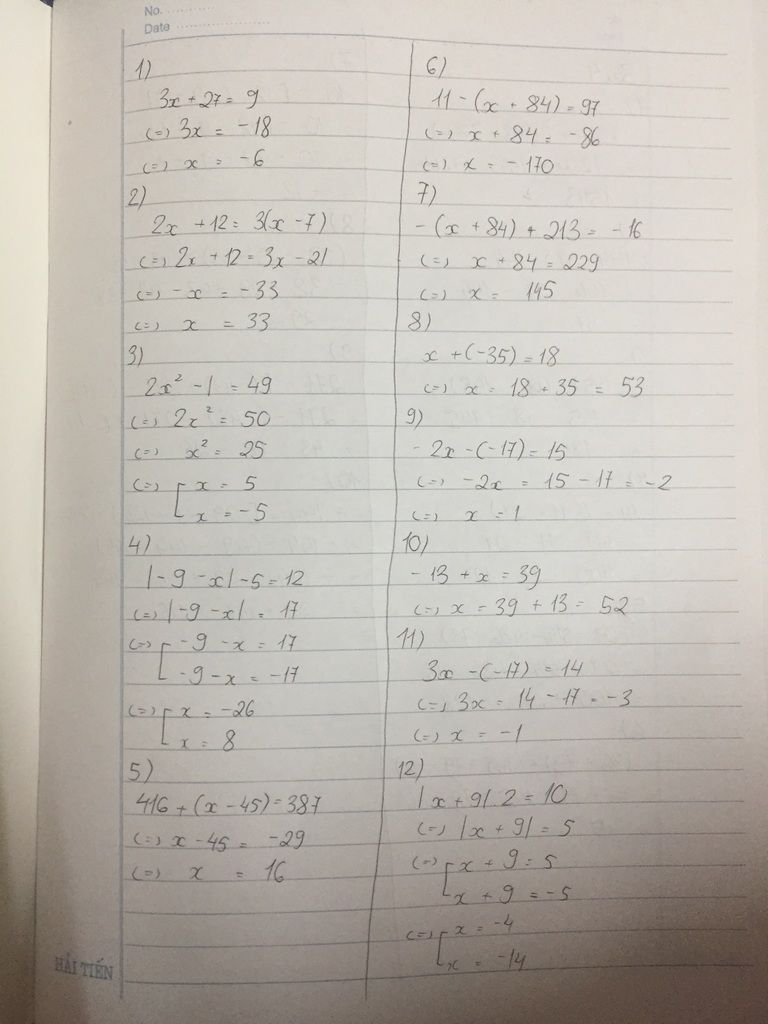 No. ...........
Date .....................
1)
3x + 27 = 9
(=) 3x = -18
(=) x = -6
2)
2x + 12 = 3(x - 7)
(=) 2x + 12 = 3x - 21
(=) -x = -33
(=) x = 33
3)
2x² - 1 = 49
(=) 2x² = 50
(=) x² = 25
(=) [ x = 5
x = -5
4)
|-9 - x| - 5 = 12
(=) |-9 - x| = 17
(=) [ -9 - x = 17
-9 - x = -17
(=) [ x = -26
x = 8
5)
416 + (x - 45) = 387
(=) x - 45 = -29
(=) x = 16
6)
11 - (x + 84) = 97
(=) x + 84 = -86
(=) x = -170
7)
-(x + 84) + 213 = -16
(=) x + 84 = 229
(=) x = 145
8)
x + (-35) = 18
(=) x = 18 + 35 = 53
9)
-2x - (-17) = 15
(=) -2x = 15 - 17 = -2
(=) x = 1
10)
-13 + x = 39
(=) x = 39 + 13 = 52
11)
3x - (-17) = 14
(=) 3x = 14 - 17 = -3
(=) x = -1
12)
|x + 9|. 2 = 10
(=) |x + 9| = 5
(=) [ x + 9 = 5
x + 9 = -5
(=) [ x = -4
x = -14
HẢI TIẾN